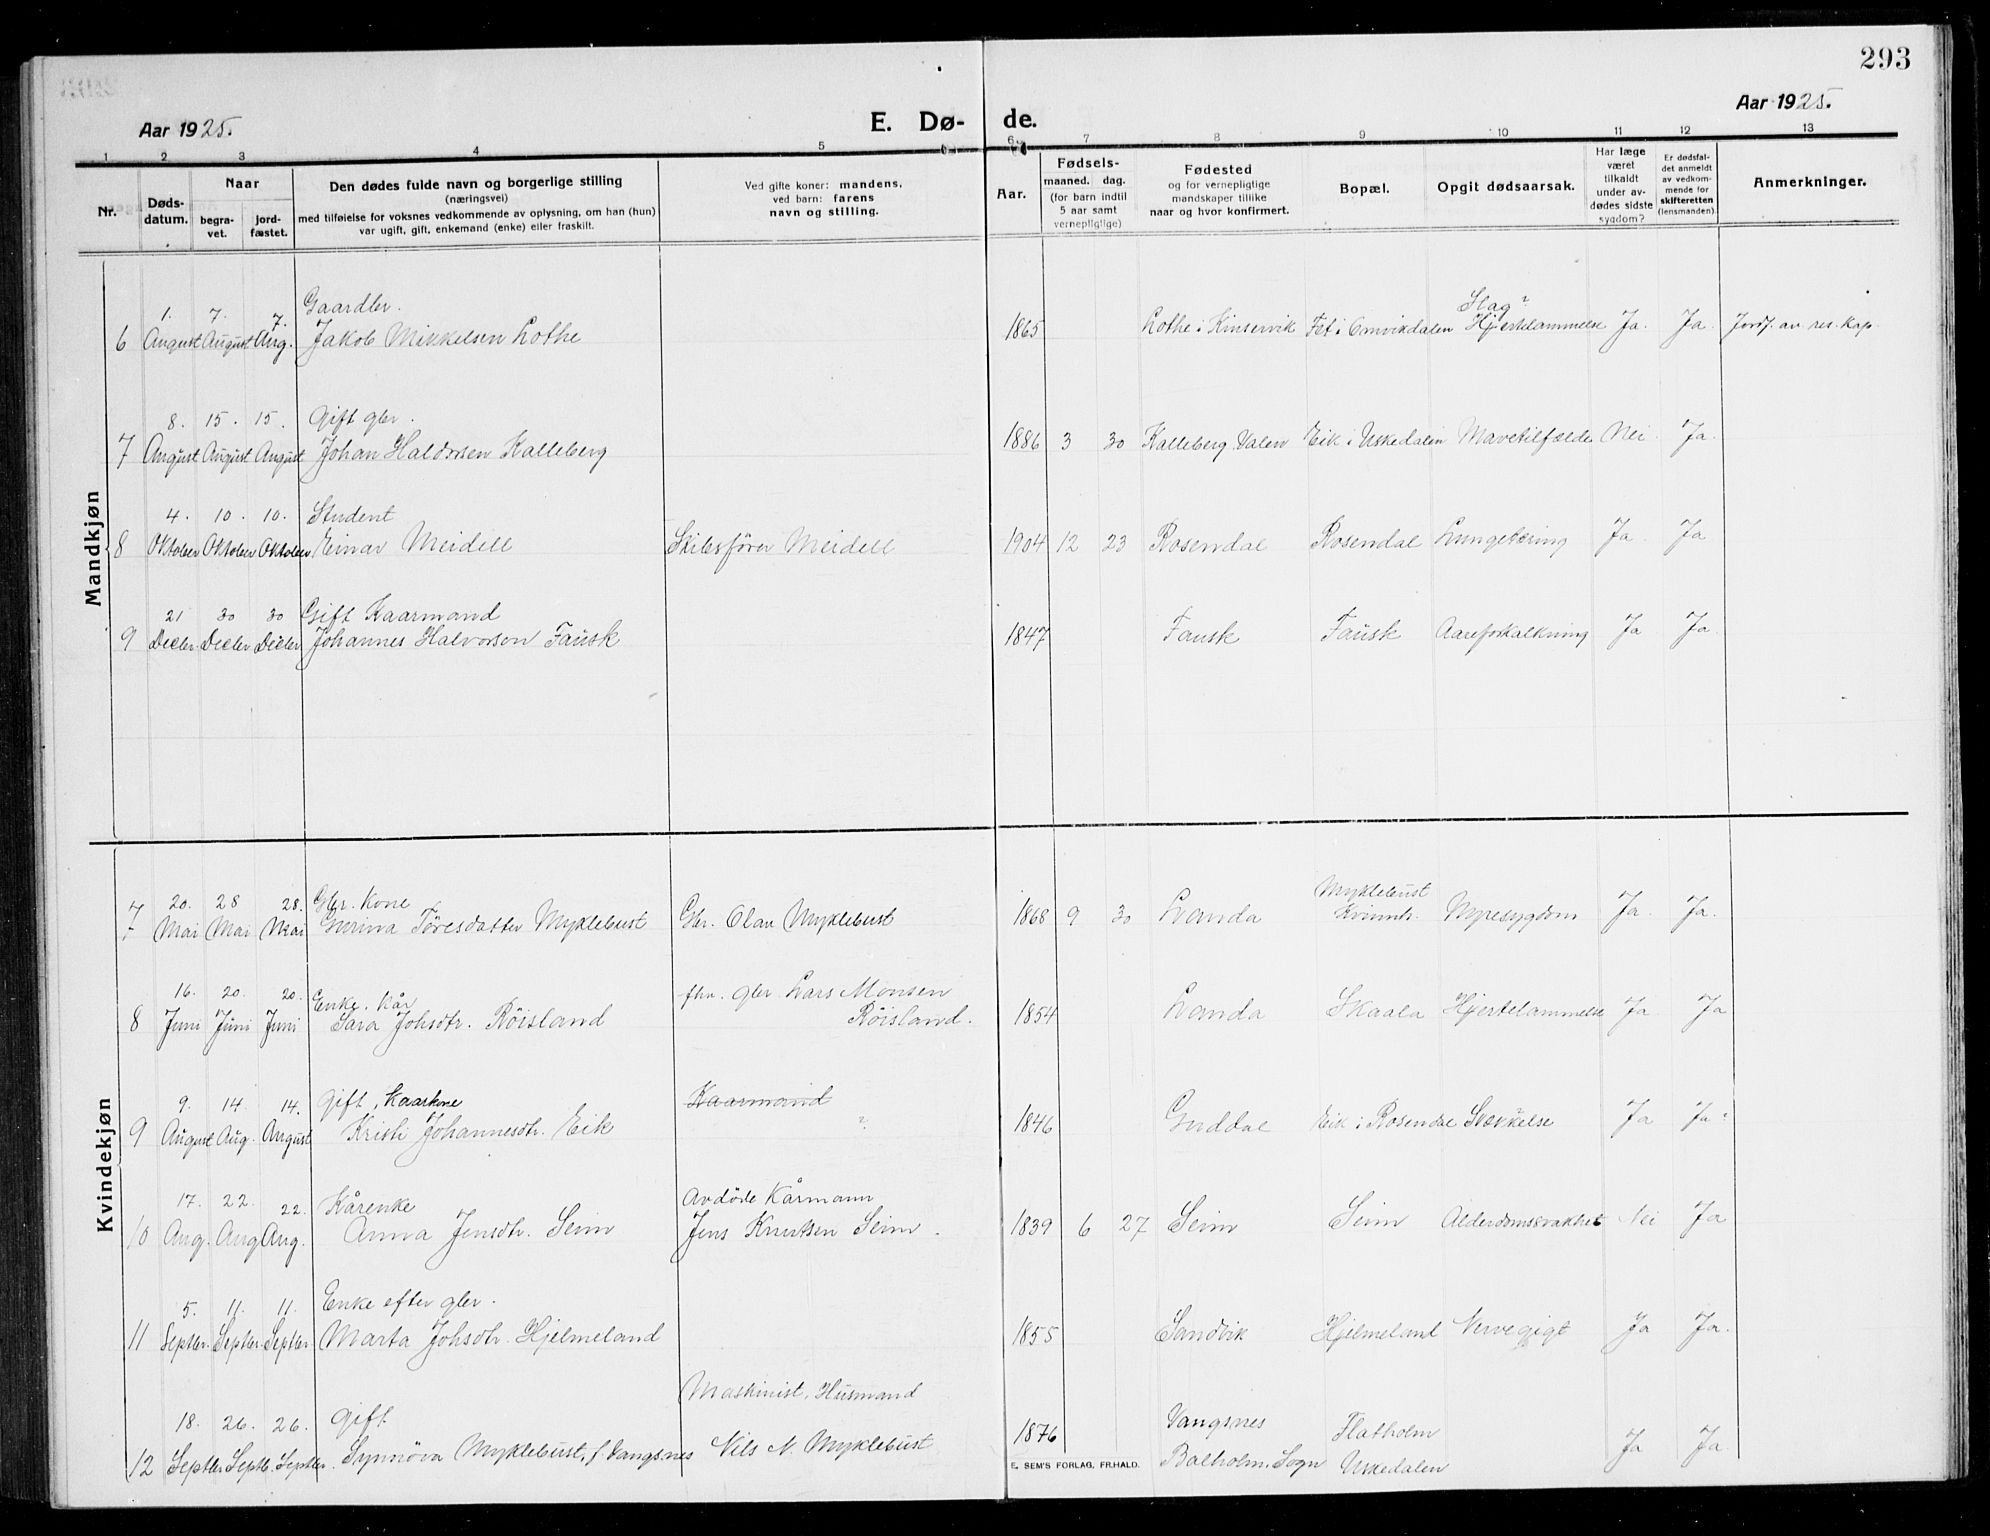 293
Aar 1925.
E. Dø- de.
Aar 1925.
1 2 3 4 5 6 7 8 9 10 11 12 13
Nr.
Døds-
datum.
Naar
begra-
vet.
jord-
fæstet.
Den dødes fulde navn og borgerlige stilling
(næringsvei)
med tilføielse for voksnes vedkommende av oplysning, om han (hun)
var ugift, gift, enkemand (enke) eller fraskilt.
Ved gifte koner: mandens,
ved barn: farens
navn og stilling.
Aar.
Fødsels-
maaned. dag.
(for barn indtil
5 aar samt
vernepligtige)
Fødested
og for vernepligtige
mandskaper tillike
naar og hvor konfirmert.
Bopæl.
Opgit dødsaarsak.
Har læge
været
tilkaldt
under av-
dødes sidste
sygdom?
Er dødsfal-
det anmeldt
av vedkom-
mende for
skifteretten
(lensmanden).
Anmerkninger.
Mandkjøn
1. 7. 7. Gaardbr. Slag?
6 August August Aug. Jakob Mikkelsen Lothe 1865 Lothe i Kinservik Fet i Omvikdalen Hjertelammelse Ja. Ja. Jordf. av res. kap.
8. 15. 15. Gift gbr.
7 August August August Johan Haldorsen Kalleberg 1886 3 30 Kalleberg Valen Eik i Uskedalen Mavetilfælde Nei. Ja.
4. 10. 10. Student
8 Oktober Oktober Oktober Einar Meidell Skibsfører Meidell 1904 12 23 Rosendal Rosendal Lungetæring Ja. Ja
21 30 30 Gift Kaarmand
9 Decbr. Decbr Decbr Johannes Halvorson Fausk 1847 Fausk Fausk Aareforkalkning Ja Ja
Kvindekjøn
20. 28 28. Gbr. Kone Myklebust
7 Mai Mai Mai Gurina Tøresdatter Myklebust Gbr. Olav Myklebust 1868 9 30 Lvanda Kvinnh. Nyresygdom Ja. Ja.
16. 20. 20. Enke. Kår fhv. gbr Lars Monsen
8 Juni Juni Juni Sara Johsdtr. Röisland Röisland. 1854 Lvanda Skaala Hjertelammelse Ja Ja
9. 14. 14. Gift, Kaarkone Kaarmand
9 August Aug. August Kristi Johannesdtr. Eik ? 1846 Guddal Eik i Rosendal Svækkelse Ja Ja?
17. 22. 22. Kårenke Avdöde Kårmann
10 Aug. Aug Aug. Anna Jensdtr. Seim Jens Knutsen Seim. 1839 6 27 Seim Seim Alderdomssvakhet Nei Ja
5. 11. 11. Enke efter gbr.
11 Septbr. Septbr. Septbr. Marta Johsdtr. Hjelmeland 1855 Sandvik Hjelmeland Nervegigt Ja Ja.
Maskinist, Husmand
18. 26. 26. Gift 1876 Vangsnes Flatholm
12 Septbr Septb. Septbr. Synnöva Myklebust, f. Vangsnes Nils N. Myklebust Balholm, Sogn Uskedalen Ja Ja
E. SEM'S FORLAG, FR.HALD.